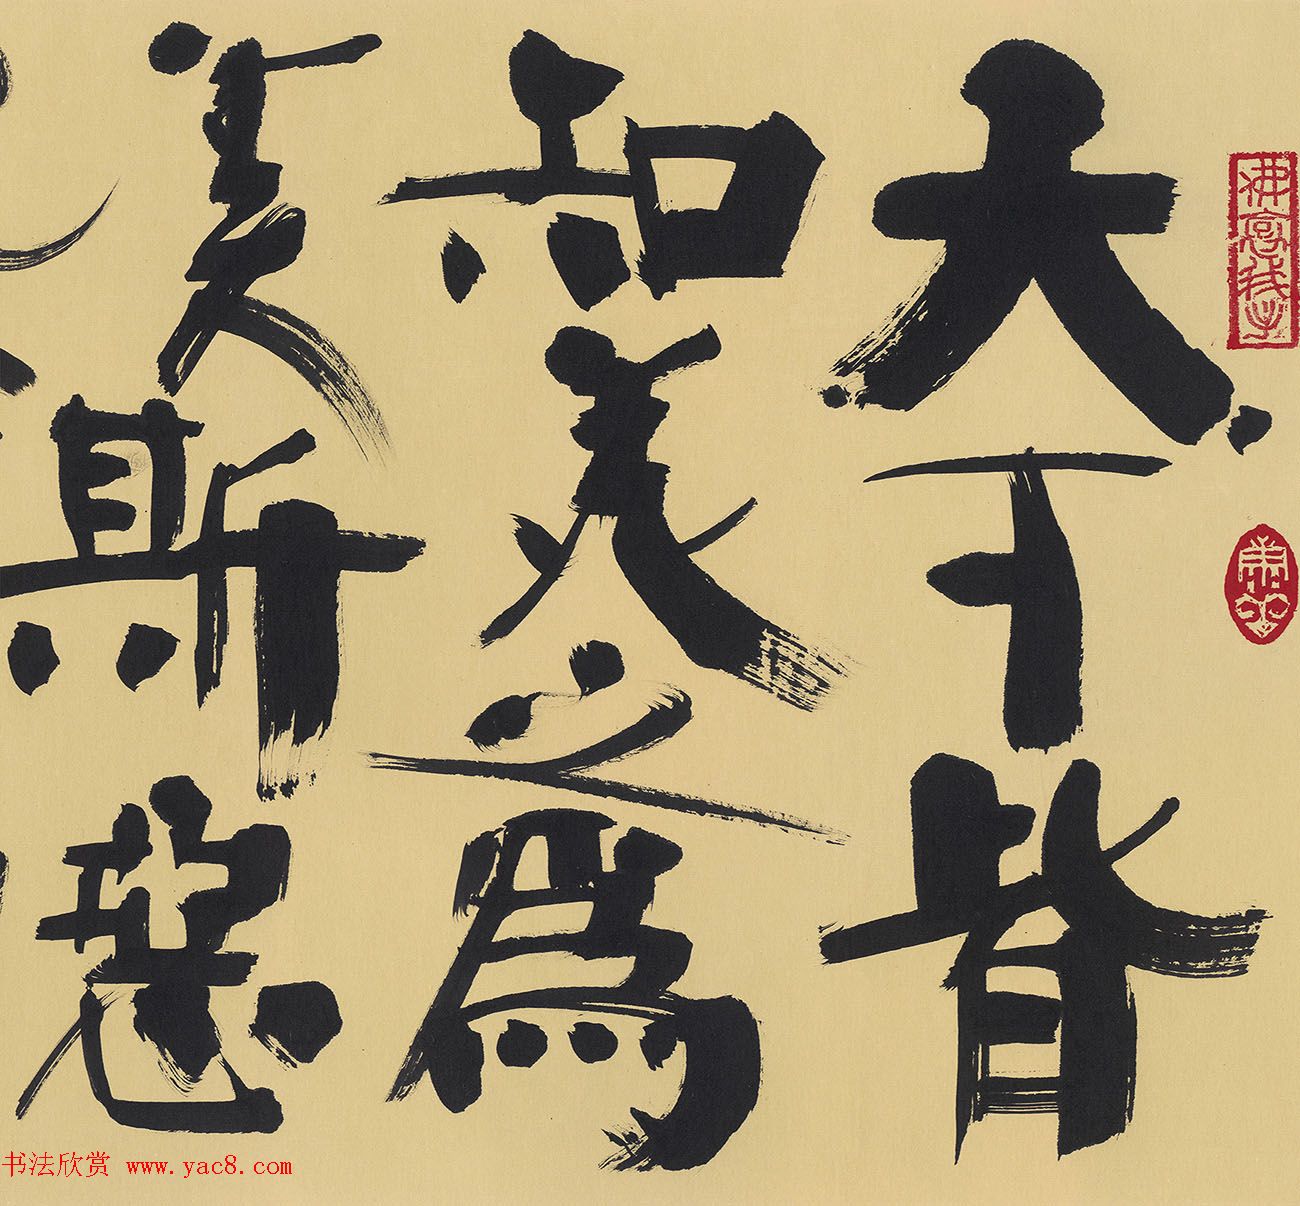 天下皆
知美之為
美斯惡
书法欣赏 www.yac8.com